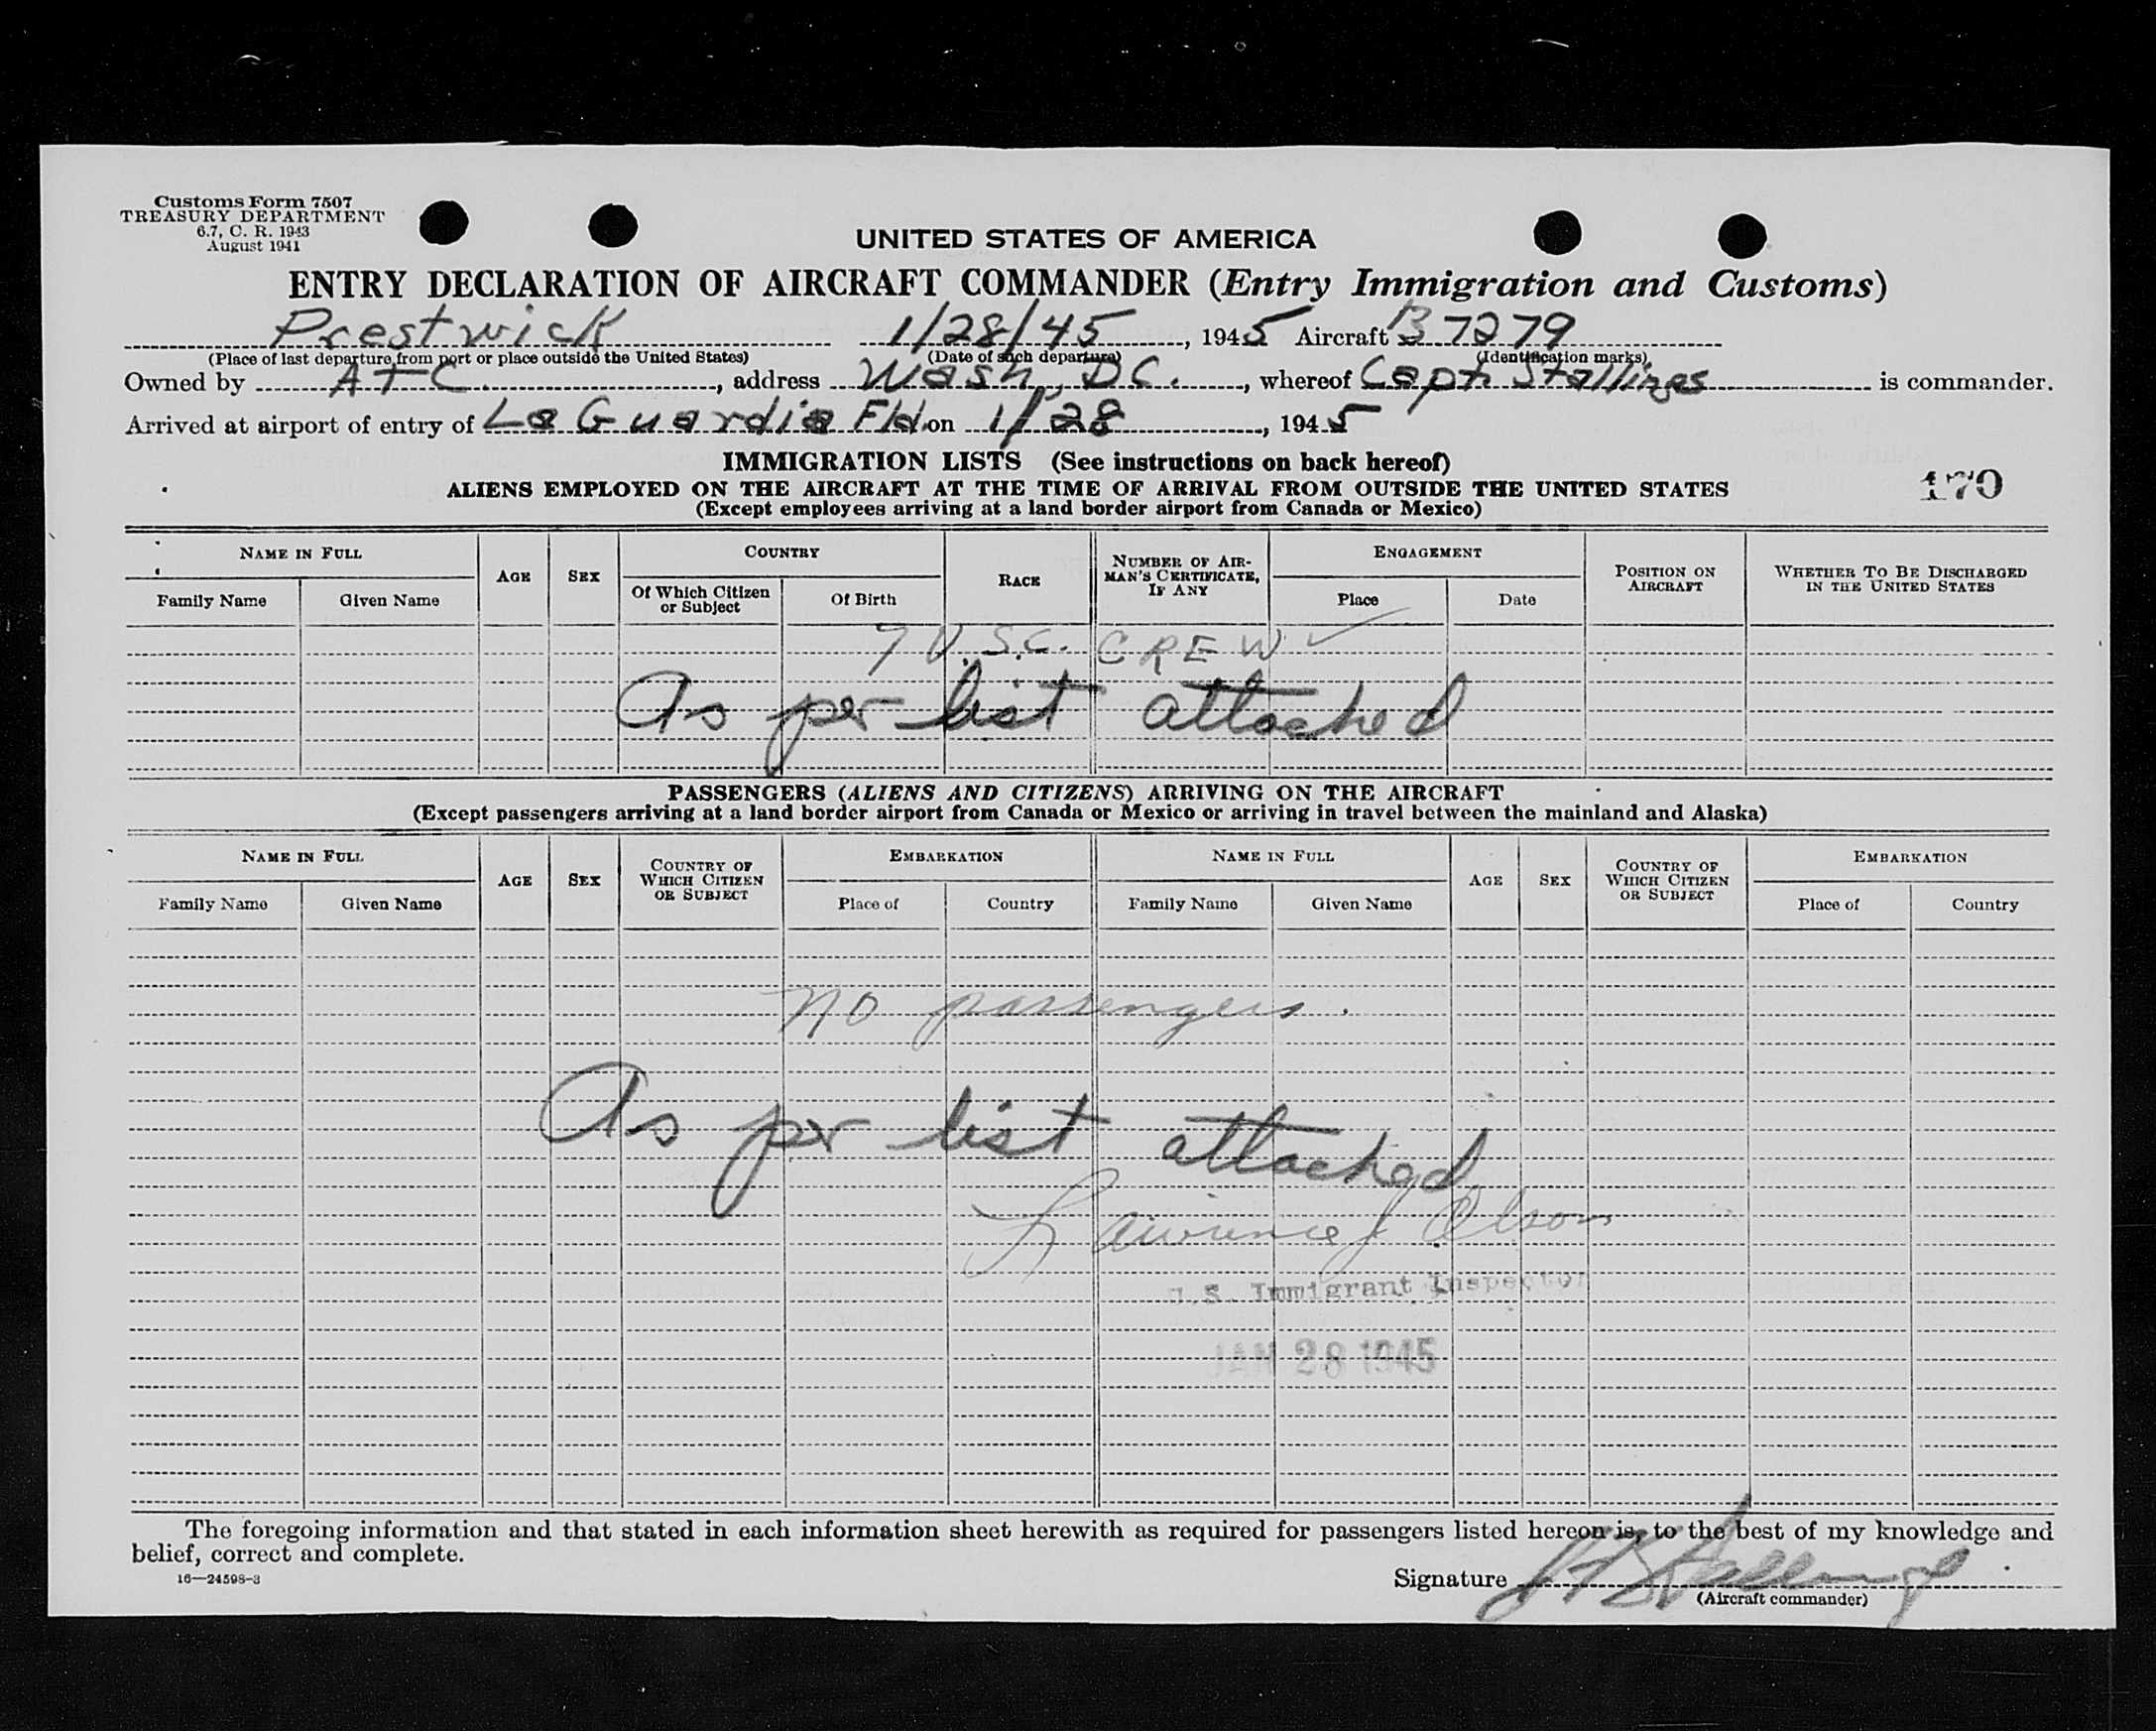 Customs Form 7507
TREASURY DEPARTMENT
6.7, C. R. 1943
August 1941
UNITED STATES OF AMERICA
ENTRY DECLARATION OF AIRCRAFT COMMANDER (Entry Immigration and Customs)
Prestwick 1/28/45, 1945 Aircraft B 7279
(Place of last departure from port or place outside the United States) (Date of such departure) (Identification marks)
Owned by ATC, address Wash, DC., whereof Capt Stallings is commander.
Arrived at airport of entry of La Guardia Fld. on 1/28, 1945
IMMIGRATION LISTS (See instructions on back hereof)
170
ALIENS EMPLOYED ON THE AIRCRAFT AT THE TIME OF ARRIVAL FROM OUTSIDE THE UNITED STATES
(Except employees arriving at a land border airport from Canada or Mexico)
NAME IN FULL AGE SEX COUNTRY RACE NUMBER OF AIRMAN'S CERTIFICATE, IF ANY ENGAGEMENT POSITION ON AIRCRAFT WHETHER TO BE DISCHARGED IN THE UNITED STATES
Family Name Given Name Of Which Citizen or Subject Of Birth Place Date
7 U.S.C. CREW
As per list attached
PASSENGERS (ALIENS AND CITIZENS) ARRIVING ON THE AIRCRAFT
(Except passengers arriving at a land border airport from Canada or Mexico or arriving in travel between the mainland and Alaska)
NAME IN FULL AGE SEX COUNTRY OF WHICH CITIZEN OR SUBJECT EMBARKATION NAME IN FULL AGE SEX COUNTRY OF WHICH CITIZEN OR SUBJECT EMBARKATION
Family Name Given Name Place of Country Family Name Given Name Place of Country
No passengers.
As per list attached
Lawrence J Olson
U.S. Immigrant Inspector
JAN 28 1945
The foregoing information and that stated in each information sheet herewith as required for passengers listed hereon is, to the best of my knowledge and
belief, correct and complete.
16—24598-3
Signature Stallings
(Aircraft commander)